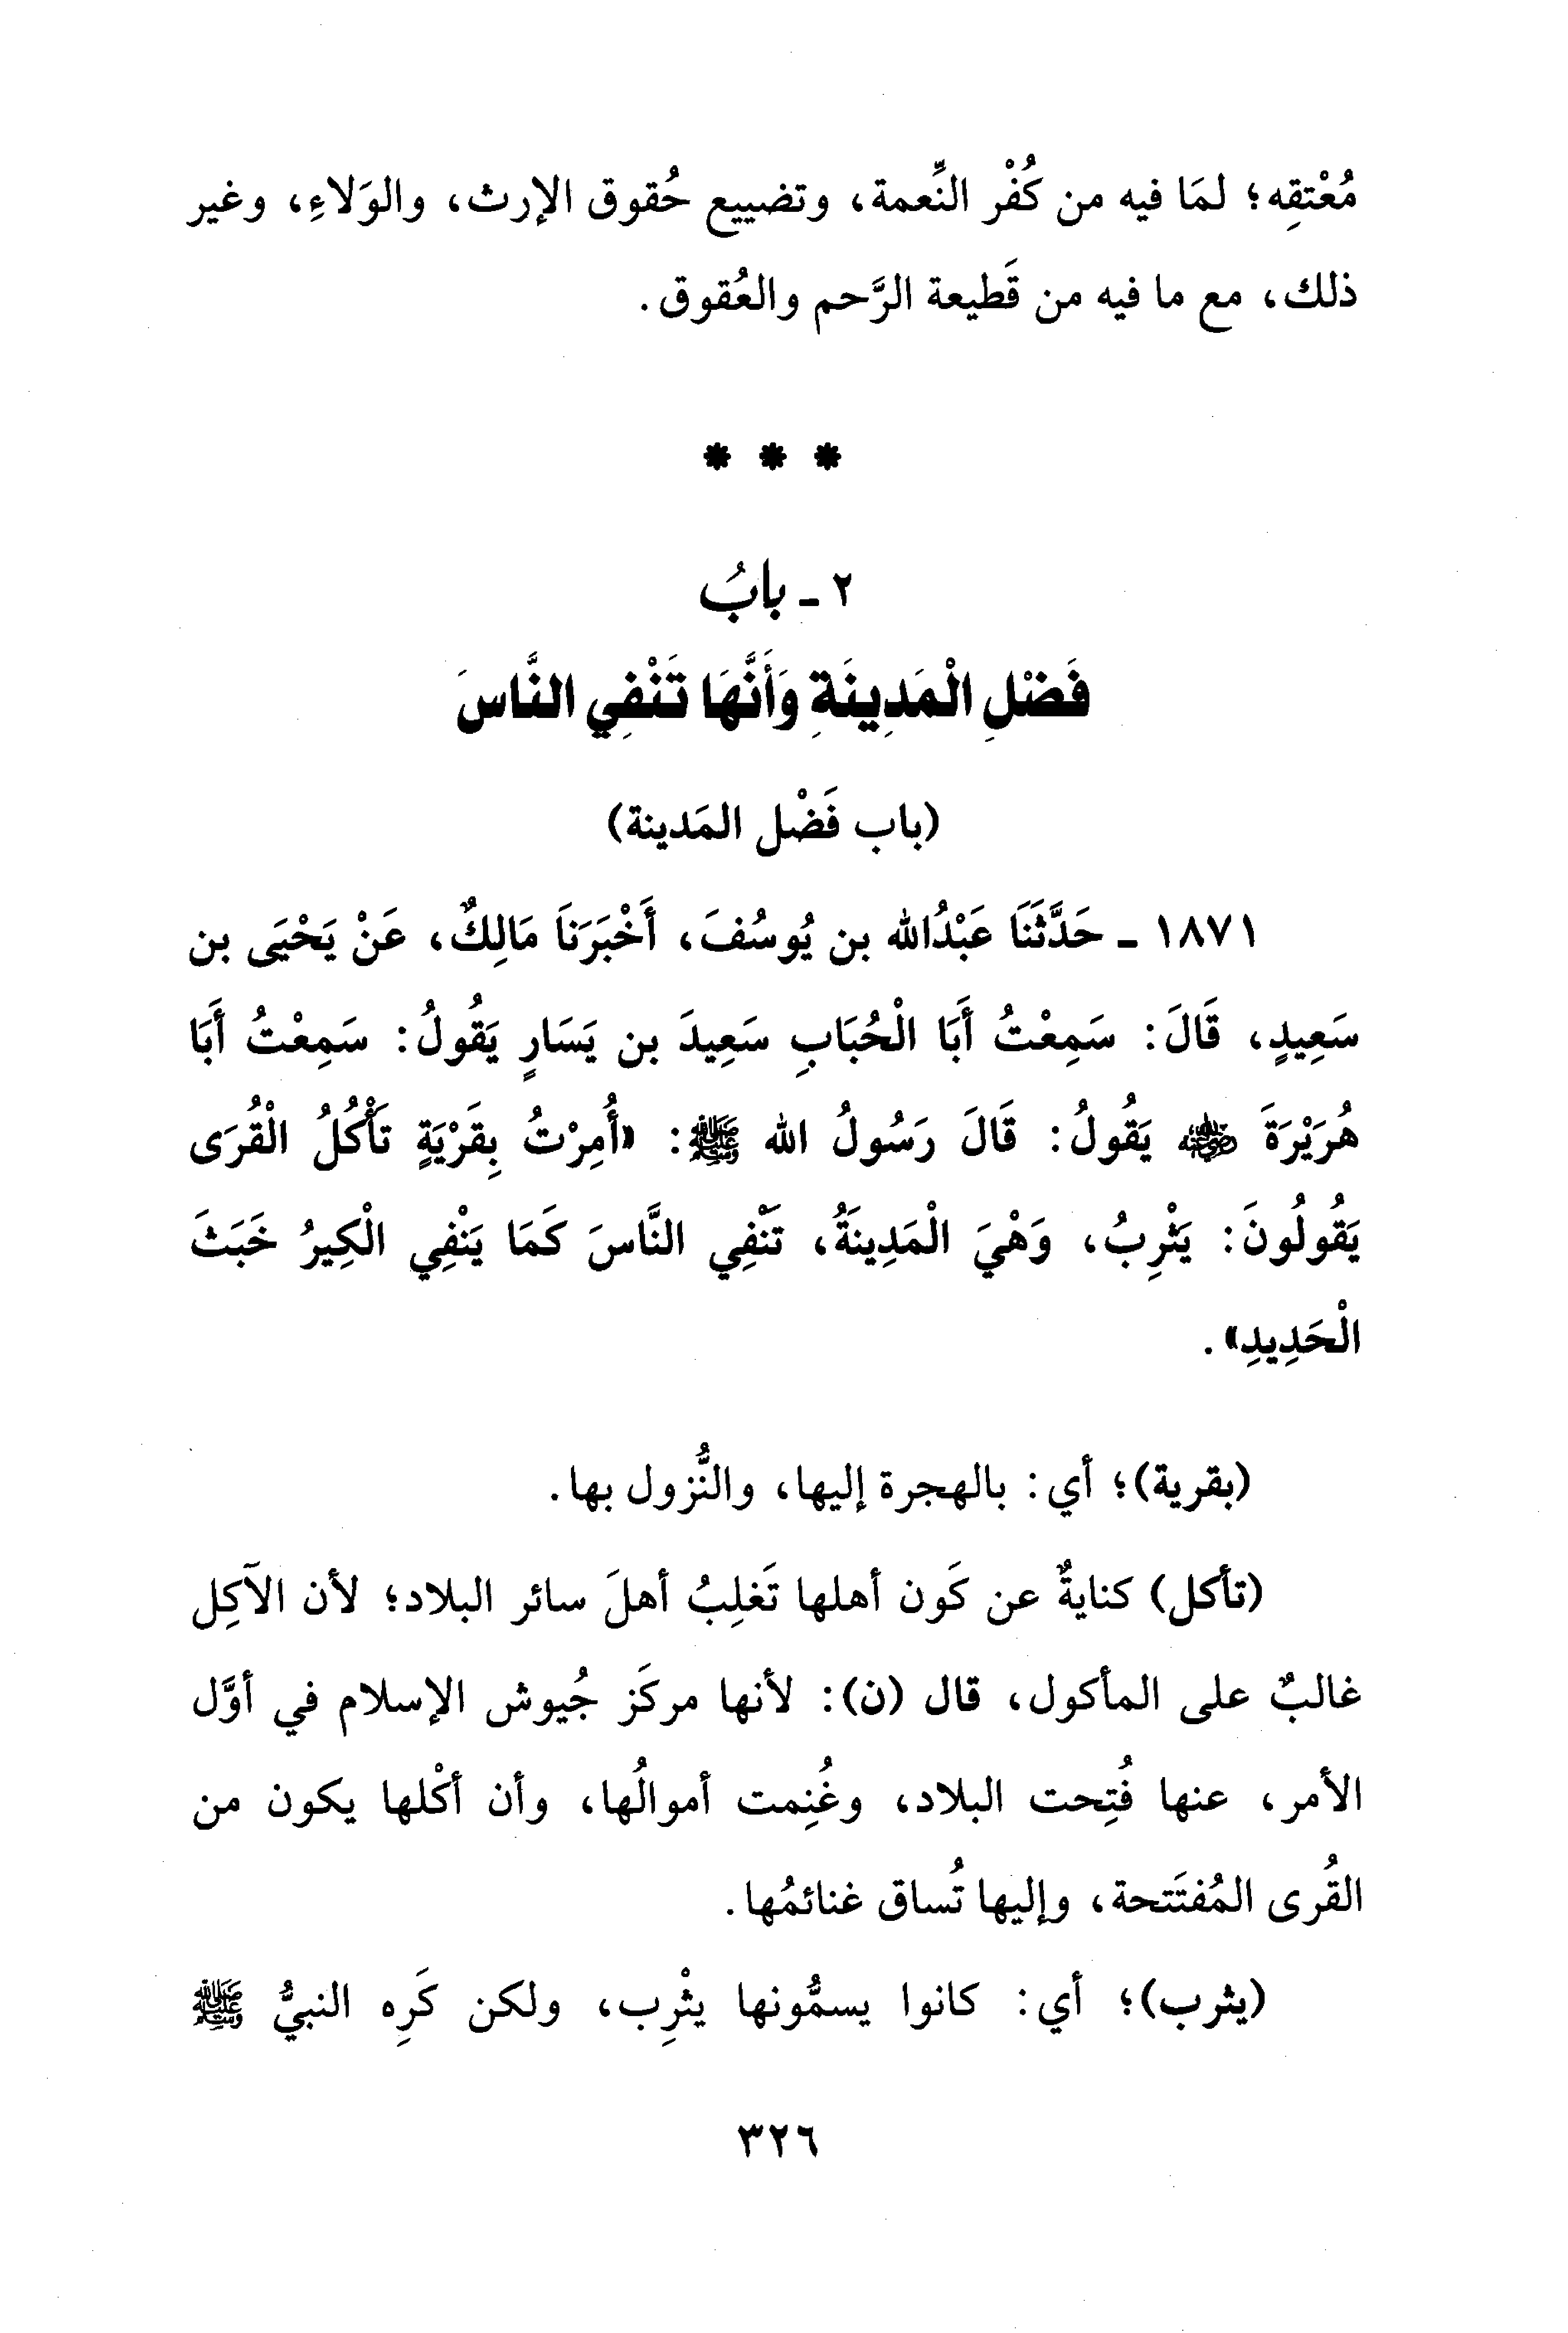 مُعْتقِه؛ لمَا فيه من كُفْر النِّعمة، وتضييع حُقوق الإرث، والوَلاءِ، وغير
ذلك، مع ما فيه من قَطيعة الرَّحم والعُقوق.
* * *
٢ - بابُ
فَضْلِ الْمَدِينَةِ وَأَنَّهَا تَنْفِي النَّاسَ
(باب فَضْل المَدينة)
١٨٧١ - حَدَّثَنَا عَبْدُالله بن يُوسُفَ، أَخْبَرَنَا مَالِكٌ، عَنْ يَحْيَى بن
سَعِيدٍ، قَالَ: سَمِعْتُ أَبَا الْحُبَابِ سَعِيدَ بن يَسَارٍ يَقُولُ: سَمِعْتُ أَبَا
هُرَيْرَةَ رضي الله عنه يَقُولُ: قَالَ رَسُولُ الله ﷺ: «أُمِرْتُ بِقَرْيَةٍ تَأْكُلُ الْقُرَى
يَقُولُونَ: يَثْرِبُ، وَهْيَ الْمَدِينَةُ، تَنْفِي النَّاسَ كَمَا يَنْفِي الْكِيرُ خَبَثَ
الْحَدِيدِ».
(بقرية)؛ أي: بالهجرة إليها، والنُّزول بها.
(تأكل) كنايةٌ عن كَون أهلها تَغلِبُ أهلَ سائر البلاد؛ لأن الآكِل
غالبٌ على المأكول، قال (ن): لأنها مركَز جُيوش الإسلام في أوَّل
الأمر، عنها فُتِحت البلاد، وغُنِمت أموالُها، وأن أكْلها يكون من
القُرى المُفتَتحة، وإليها تُساق غنائمُها.
(يثرب)؛ أي: كانوا يسمُّونها يثْرِب، ولكن كَرِه النبيُّ ﷺ
٣٢٦